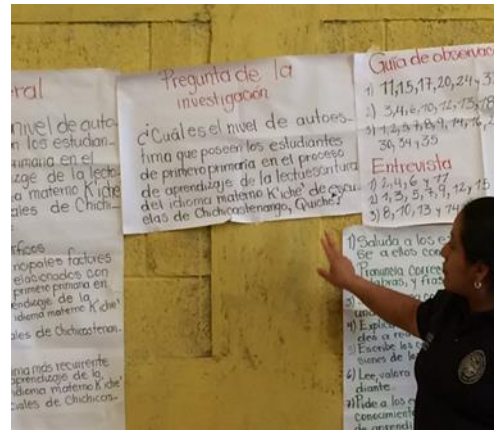 ral
nivel de auto
n los estudian-
imaria en el
zage de la lecto-
a materno Kiche
ales de Chichi-
ficos
ncipales factores
elacionados con
primero primaria en
endizaje de la
idioma materno K'iche'
ales de Chichicastenan-
ma más recurrente
aprendizaje de la
idioma materno K'iche'
ciales de Chichicas-
Pregunta de la
investigación
¿Cuál es el nivel de autoes-
tima que poseen los estudiantes
de primero primaria en el proceso
de aprendizaje de la lectoescritura
del idioma materno K'iche' de escu-
elas de Chichicastenango, Quiché?
Guía de observac
1) 11,15,17,20,24 y 3
2) 3,4,6,10,12,13,18
3) 1,2,5,7,8,9,14,16,2
30,34 y 35
Entrevista
1) 2,4,6 y 11
2) 1,3,5,7,9,12,15
3) 8,10,13 y 14
1) Saluda a los es
se a ellos con
Pronuncia correc
labras, y fras
3)
una
4) Explic
des a rea
5) Escribe los
siones de le
6) Lee, valora
diante
7) Pide a los e
conocimient
de aprendi